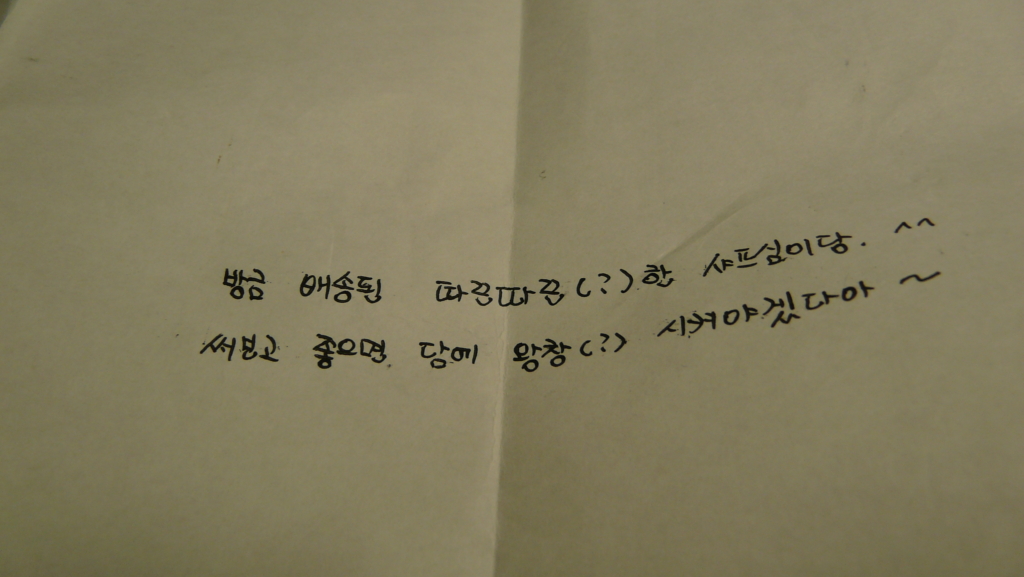 방금 배송된 따끈따끈(?)한 샤프심이당. ^^
써보고 좋으면 담에 왕창(?) 시켜야겠다아 ~